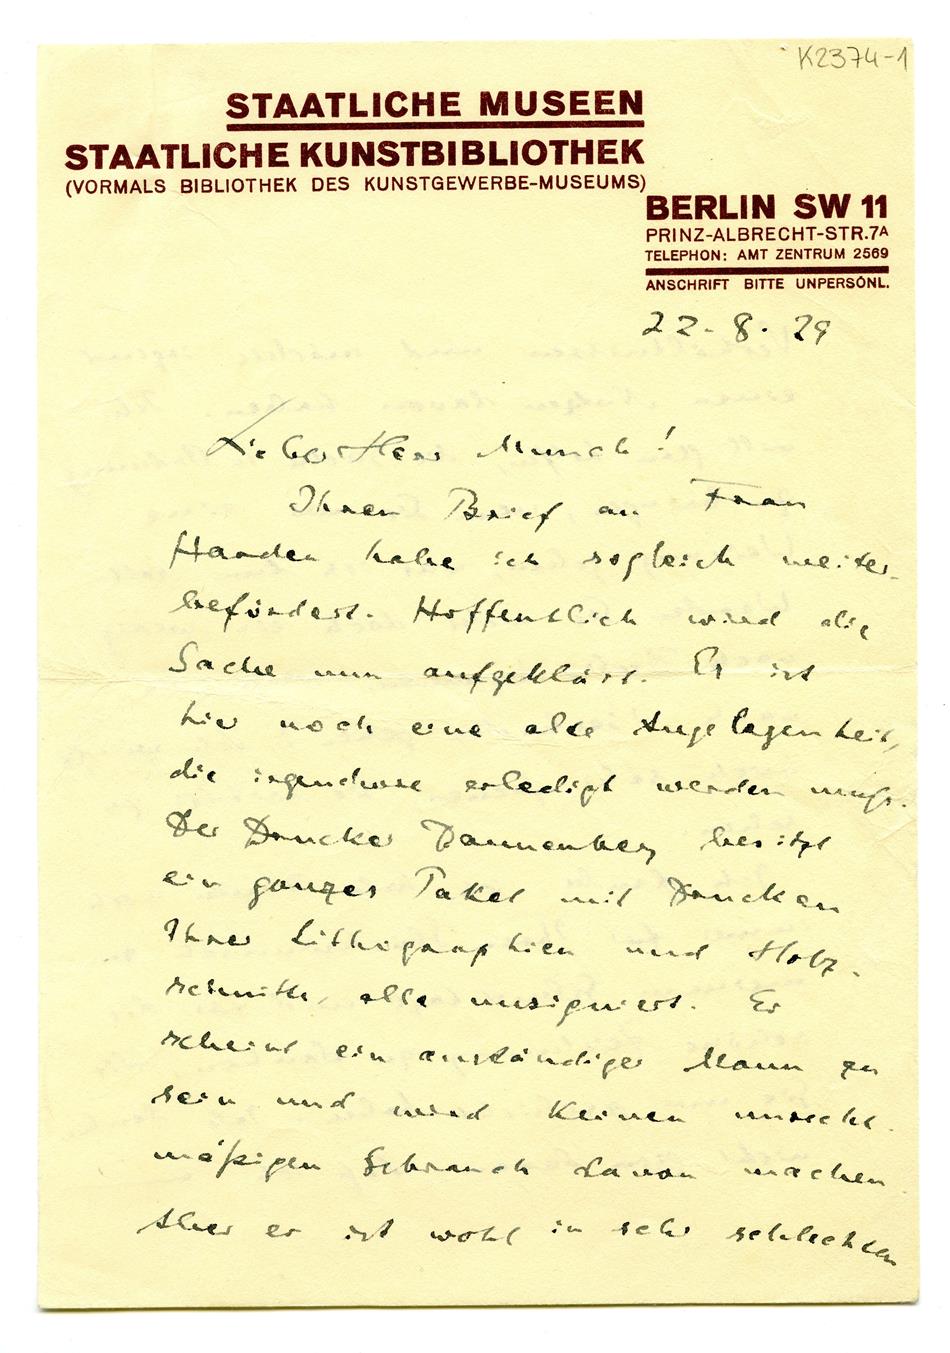 K2374-1
STAATLICHE MUSEEN
STAATLICHE KUNSTBIBLIOTHEK
(VORMALS BIBLIOTHEK DES KUNSTGEWERBE-MUSEUMS)
BERLIN SW 11
PRINZ-ALBRECHT-STR.7A
TELEPHON: AMT ZENTRUM 2569
ANSCHRIFT BITTE UNPERSÖNL.
22-8.29
Lieber Herr Munch!
Ihren Brief an Frau
Harden habe ich sogleich weiter-
befördert. Hoffentlich wird die
Sache nun aufgeklärt. Es ist
hier noch eine alte Angelegenheit,
die irgendwie erledigt werden muß.
Der Drucker Dannenberg besitzt
ein ganzes Paket mit Drucken
Ihrer Lithographien und Holz-
schnitte, alle unsigniert. Er
scheint ein anständiger Mann zu
sein und wird keinen unrecht-
mäßigen Gebrauch davon machen
Aber er ist wohl in sehr schlechten